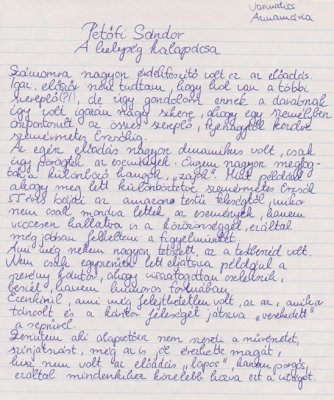 Annamária
Petőfi Sándor
A helység kalapácsa
Számomra nagyon érdekfeszítő volt ez az előadás.
Igaz, először nem tudtam, hogy hol van a többi
szereplő(?!), de úgy gondolom ennek a darabnak
így volt igazán nagy sikere, ahogy egy személyben
csoportosult az összes szereplő, fejenagytól kezdve
szemérmetes Erzsókig.
Az egész előadás nagyon dinamikus volt, csak
úgy pörögtek az események. Engem nagyon megfog-
tak a különböző hangok, "zajok". Mint például
ahogy meg lett különböztetve szemérmetes Erzsók
55 éves bájai az amazon testű feleségtől, mikor
nem csak mondva lettek az események, hanem
viccesen hallatva is a közönséggel, ezáltal
még jobban felkeltem a figyelmünket.
Ami még nekem nagyon tetszett, az a testbeszéd volt.
Nem csak egyszerűen lett eljátszva például a
szerény kántor, ahogy visszafogottan viselkedik,
beszél, hanem humoros formában.
Ezenkívül, ami még felejthetetlen volt, az az, amikor
táncolt és a kántor feleségét játszva "verekedett"
a seprűvel.
Szerintem aki alapvetően nem szereti a művészetet,
színjátszást, még az is jól érezhette magát,
hisz nem volt az előadás "lapos", hanem pörgős,
ezáltal mindenkihez közelebb hozva ezt a világot.